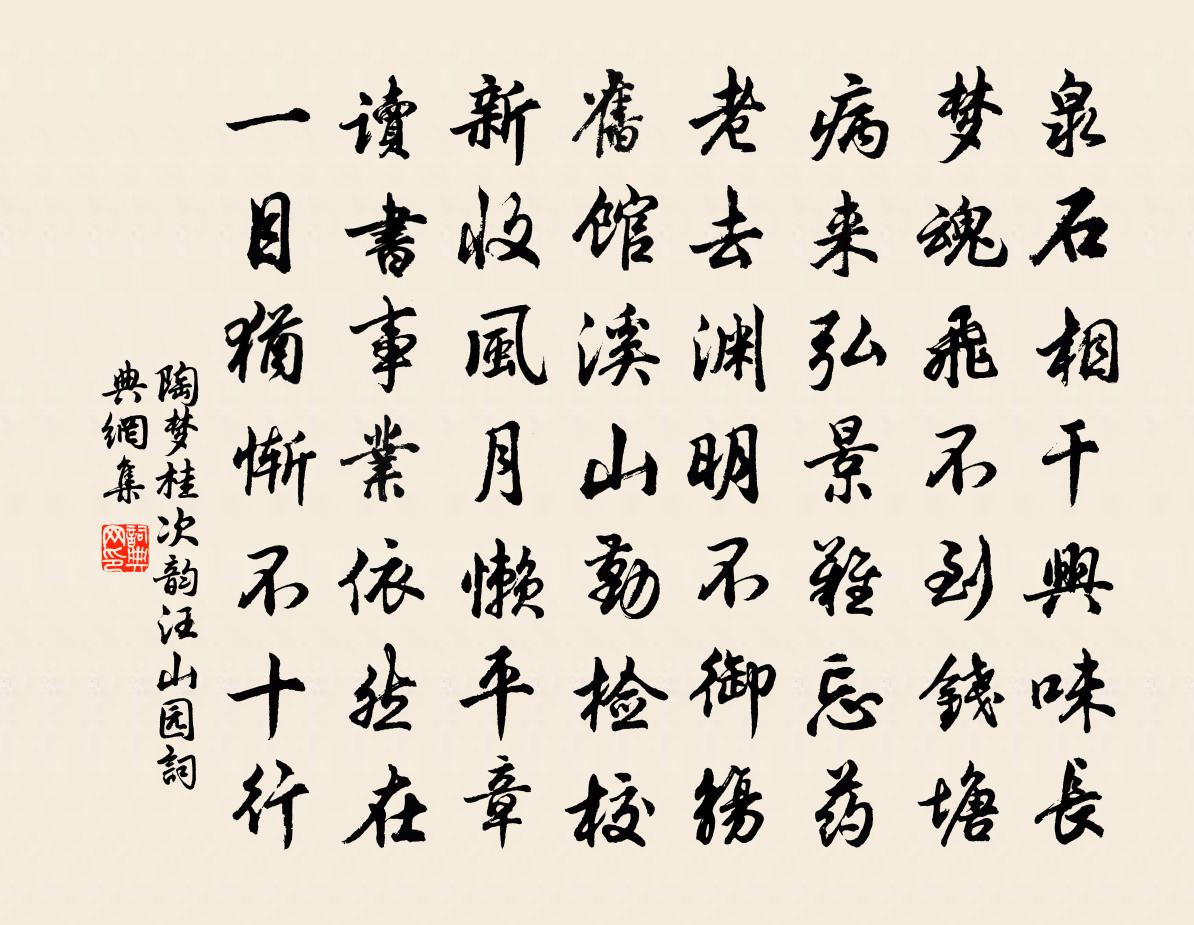 泉石相干興味長
梦魂飛不到錢塘
病来弘景難忘药
老去渊明不御觴
舊馆溪山勤检校
新收風月懒平章
讀書事業依然在
一目猶惭不十行
陶梦桂次韵汪山园詞
典網集
詞典网印